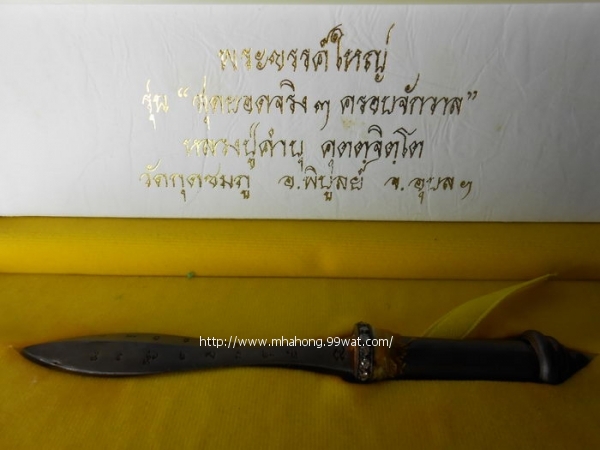 พระขรรค์ใหญ่
รุ่น "สุดยอดจริงๆ ครอบจักวาล"
หลวงปู่คำบุ คุตตฺจิตฺโต
วัดกุดชมภู อ.พิบูลย์ จ.อุบลฯ
http://www.mhahong.99wat.com